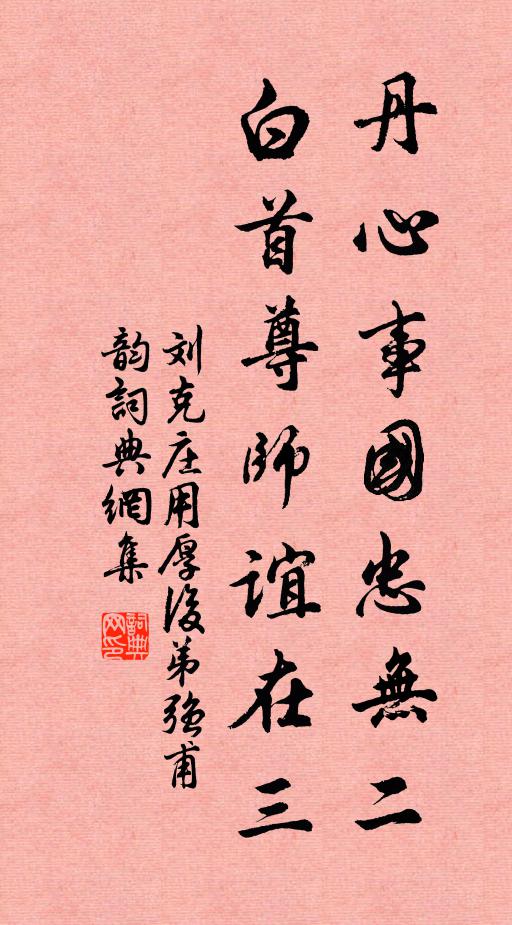 丹心事國忠無二
白首尊師誼在三
刘克庄用厚後弟强甫
韵詞典網集
詞典网印